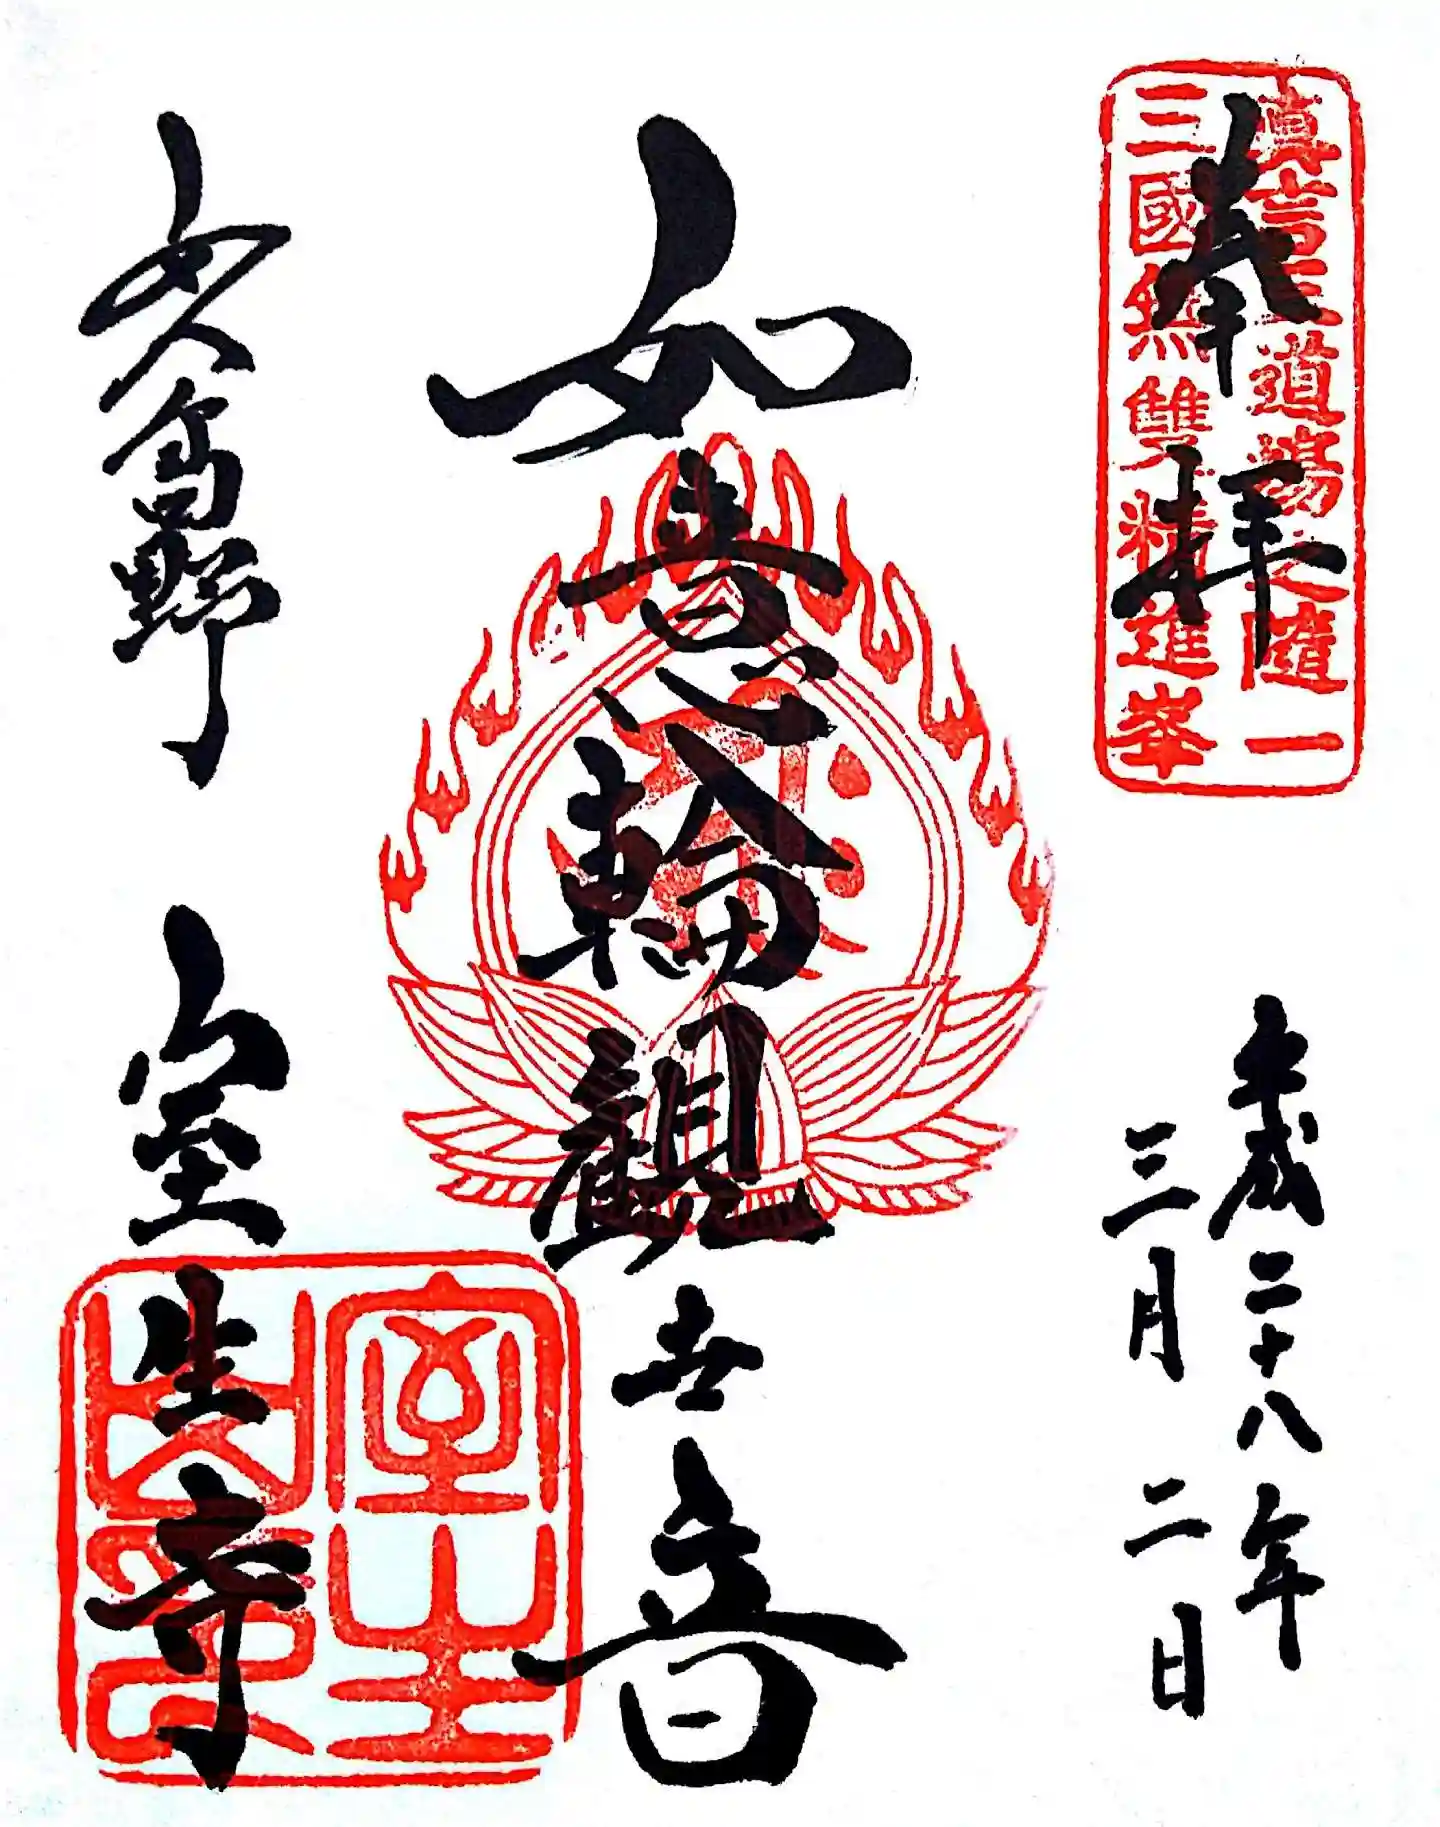 奉拝
真言道場之隨一
三國無雙精進峯
平成二十八年
三月二日
如意輪観世音
女人高野
室生寺
室生
山印